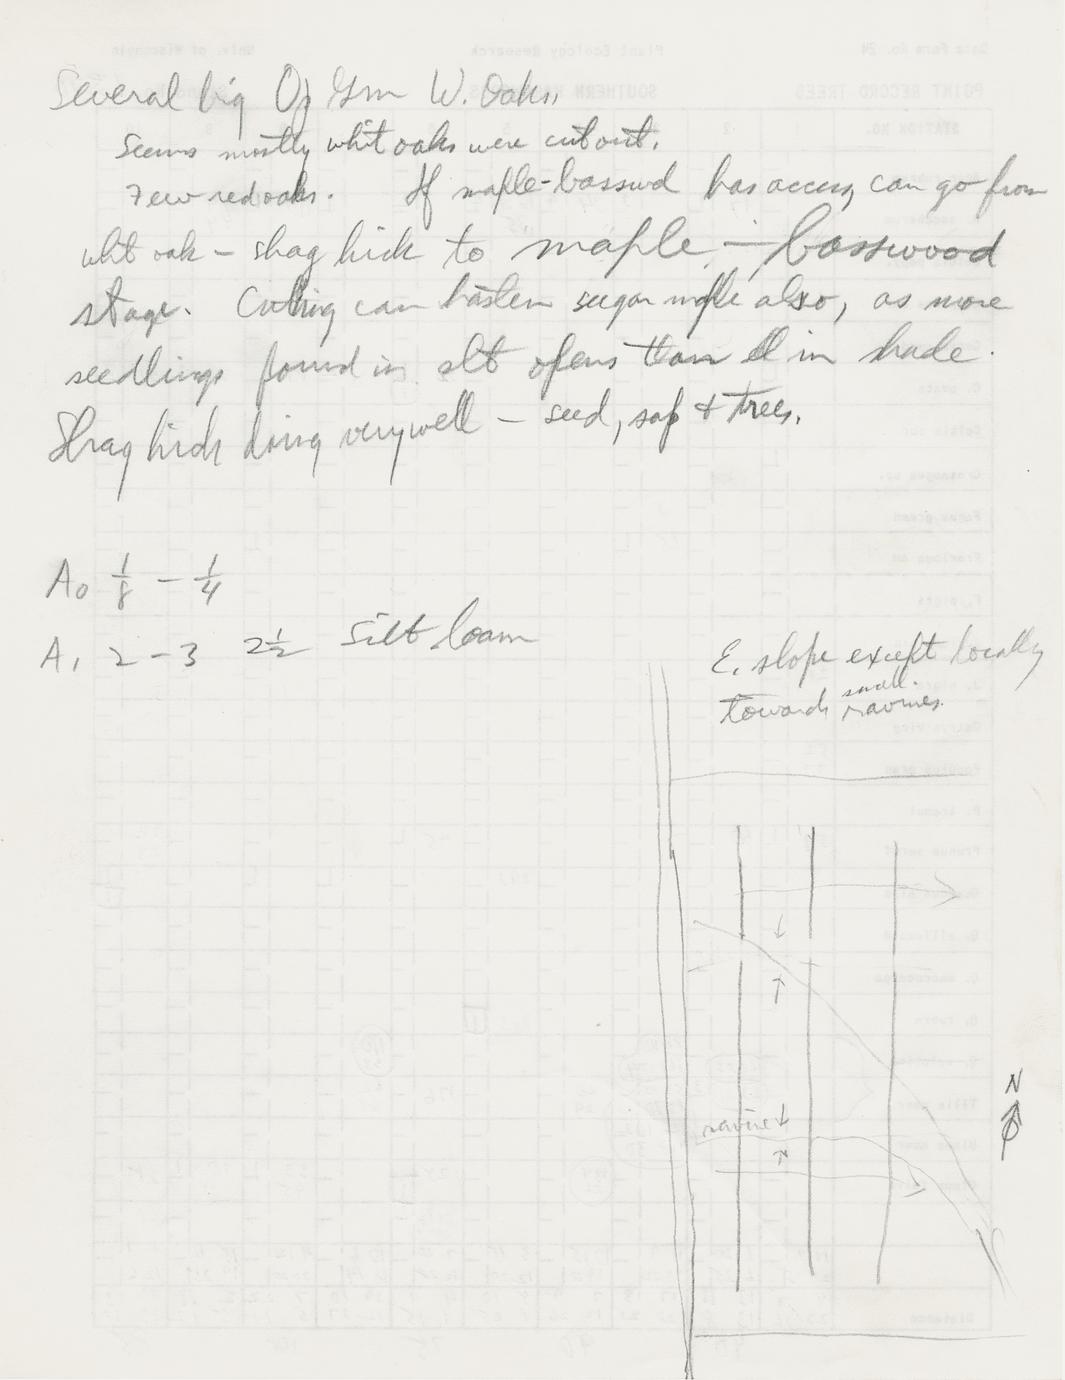 Several big Og Grn W. Oaks,
Seems mostly whit oaks were cut out.
Few red oaks. If maple-basswd has access, can go from
wht oak – shag hick to maple – basswood
stage. Cutting can hasten sugar maple also, as more
seedlings found in slt opens than in shade.
Shag hick doing very well – seed, sap & trees.
A0 1/8 – 1/4
A1 2 – 3 2 1/2 Silt loam
E. slope except locally
towards small ravines.
ravine
N